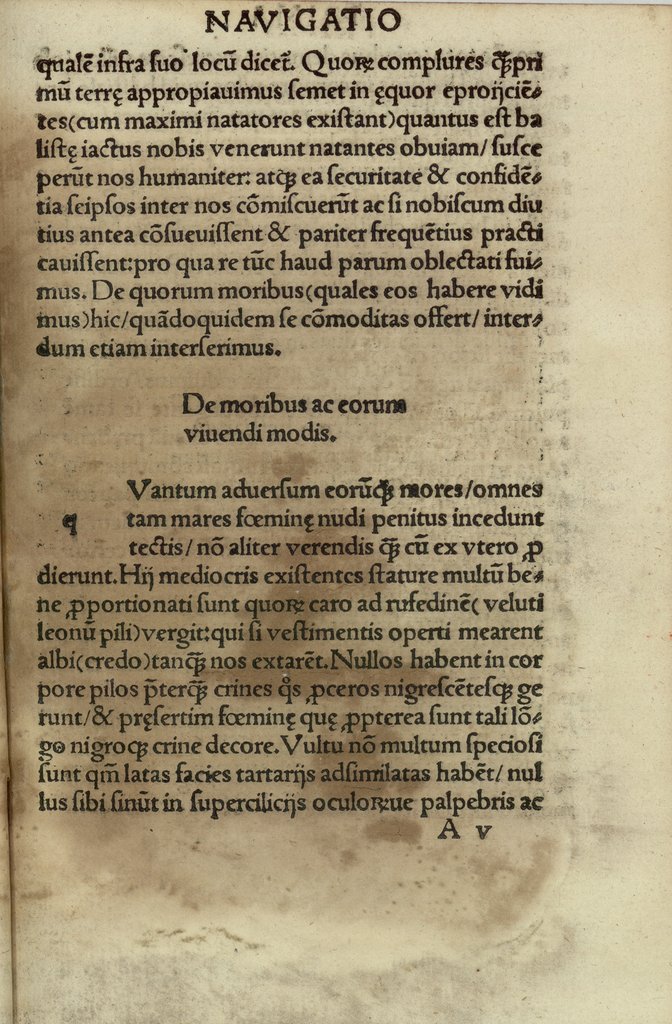 NAVIGATIO
qualē infra suo locũ dicet̃. Quoꝝ complures ꝙ̃pri
mũ terrę appropiauimus semet in ęquor eproijciē⸗
tes(cum maximi natatores existant)quantus est ba
listę iactus nobis venerunt natantes obuiam/ susce
perũt nos humaniter: atqꝫ ea securitate & confidē⸗
tia seipsos inter nos cōmiscuerũt ac si nobiscum diu
tius antea cōsueuissent & pariter frequētius practi
cauissent:pro qua re tũc haud parum oblectati fui⸗
mus. De quorum moribus(quales eos habere vidi
mus)hic/quãdoquidem se cōmoditas offert/ inter⸗
dum etiam interserimus.
De moribus ac eorum
viuendi modis.
Vantum aduersum eorũqꝫ mores/omnes
q tam mares fœminę nudi penitus incedunt
tectis/ nō aliter verendis ꝙ̃ cũ ex vtero ꝓ
dierunt. Hij mediocris existentes stature multũ be⸗
ne ꝓportionati sunt quoꝝ caro ad rufedinē( veluti
leonũ pili)vergit:qui si vestimentis operti mearent
albi(credo)tanqꝫ̃ nos extarēt. Nullos habent in cor
pore pilos p̃terqꝫ̃ crines q̃s ꝓceros nigrescētesqꝫ ge
runt/& pręsertim fœminę quę ꝓpterea sunt tali lō⸗
go nigroqꝫ crine decore. Vultu nō multum speciosi
sunt qm̃ latas facies tartarijs adsimilatas habēt/ nul
lus sibi sinũt in supercilicijs oculoꝝue palpebris ac
A v